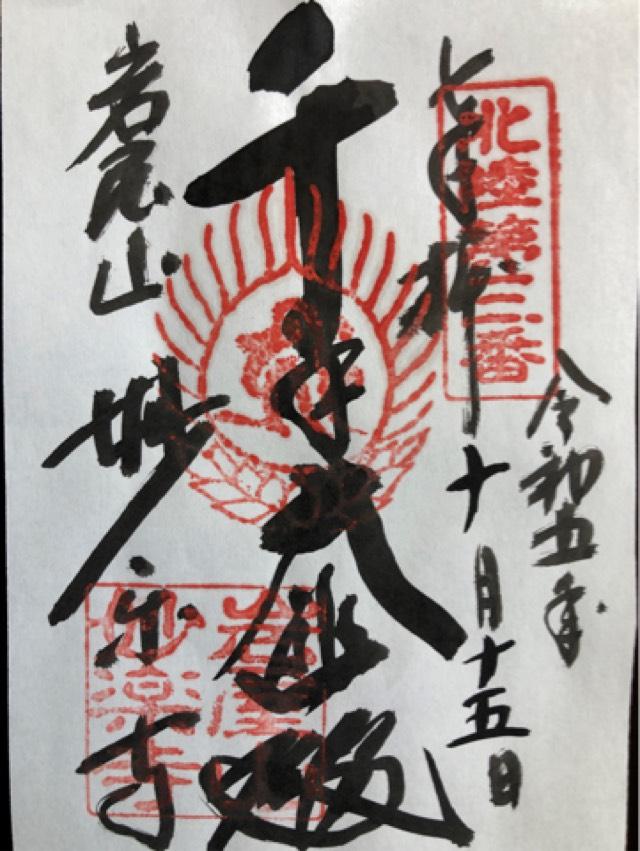 北陸第三番
令和五年
奉拝 十月十五日
千手大悲殿
岩屋山 妙楽寺
岩屋山
妙楽寺